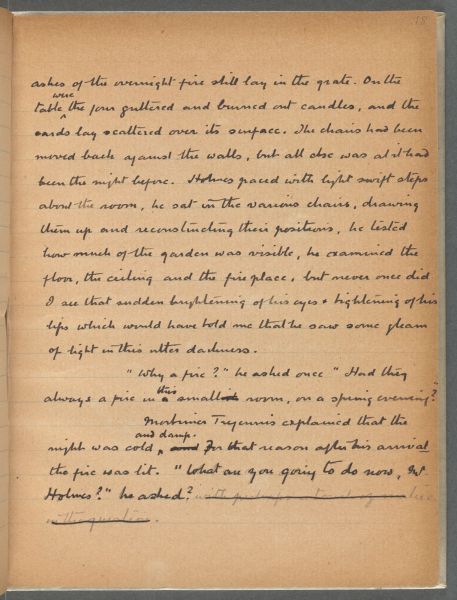 18
ashes of the overnight fire still lay in the grate. On the
were
table ^ the four guttered and burned out candles, and the
cards lay scattered over its surface. The chairs had been
moved back against the walls, but all else was as it had
been the night before. Holmes paced with light swift steps
about the room, he sat in the various chairs, drawing
them up and reconstructing their positions, he tested
how much of the garden was visible, he examined the
floor, the ceiling and the fireplace, but never once did
I see that sudden brightening of his eyes & tightening of his
lips which would have told me that he saw some gleam
of light in this utter darkness.
"Why a fire?" he asked once "Had they
this
always a fire in a small room, on a spring evening?"
Mortimer Tregennis explained that the
and damp.
night was cold, and For that reason after his arrival
the fire was lit. "What are you going to do now, Mr
Holmes?" he asked?
in the question.